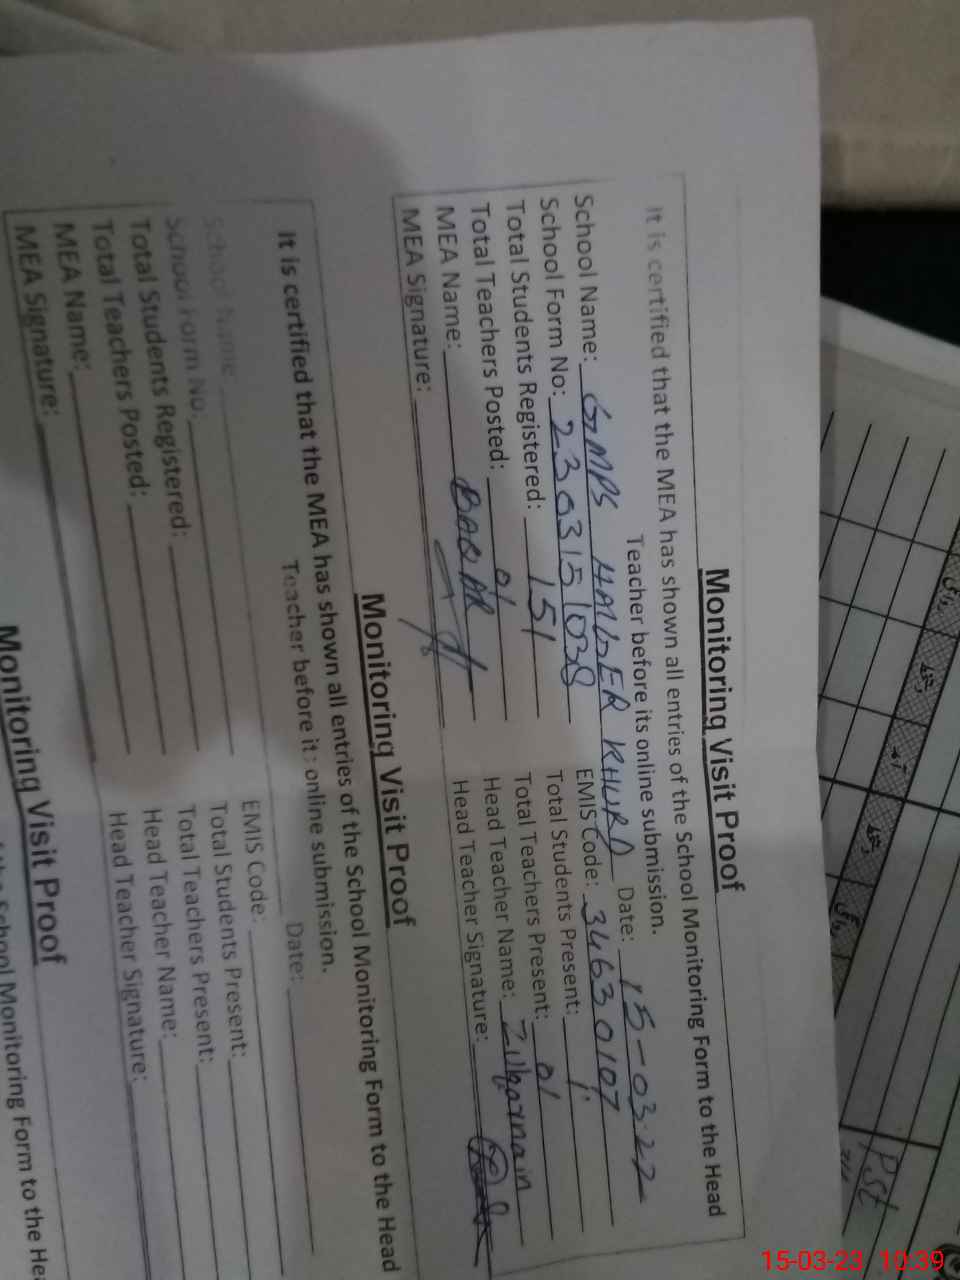 Monitoring Visit Proof
It is certified that the MEA has shown all entries of the School Monitoring Form to the Head
Teacher before its online submission.
School Name: GMPS HAIDER KHURD Date: 15-03-22
School Form No: 2303151038 EMIS Code: 34630107
Total Students Registered: 151 Total Students Present:
Total Teachers Posted: 01 Total Teachers Present: 01
MEA Name: BAQAR Head Teacher Name: Zulqarnain
MEA Signature: Head Teacher Signature:
Monitoring Visit Proof
It is certified that the MEA has shown all entries of the School Monitoring Form to the Head
Teacher before its online submission.
School Name: Date:
School Form No: EMIS Code:
Total Students Registered: Total Students Present:
Total Teachers Posted: Total Teachers Present:
MEA Name: Head Teacher Name:
MEA Signature: Head Teacher Signature:
Monitoring Visit Proof
School Monitoring Form to the Hea
PST
15-03-23 10:39